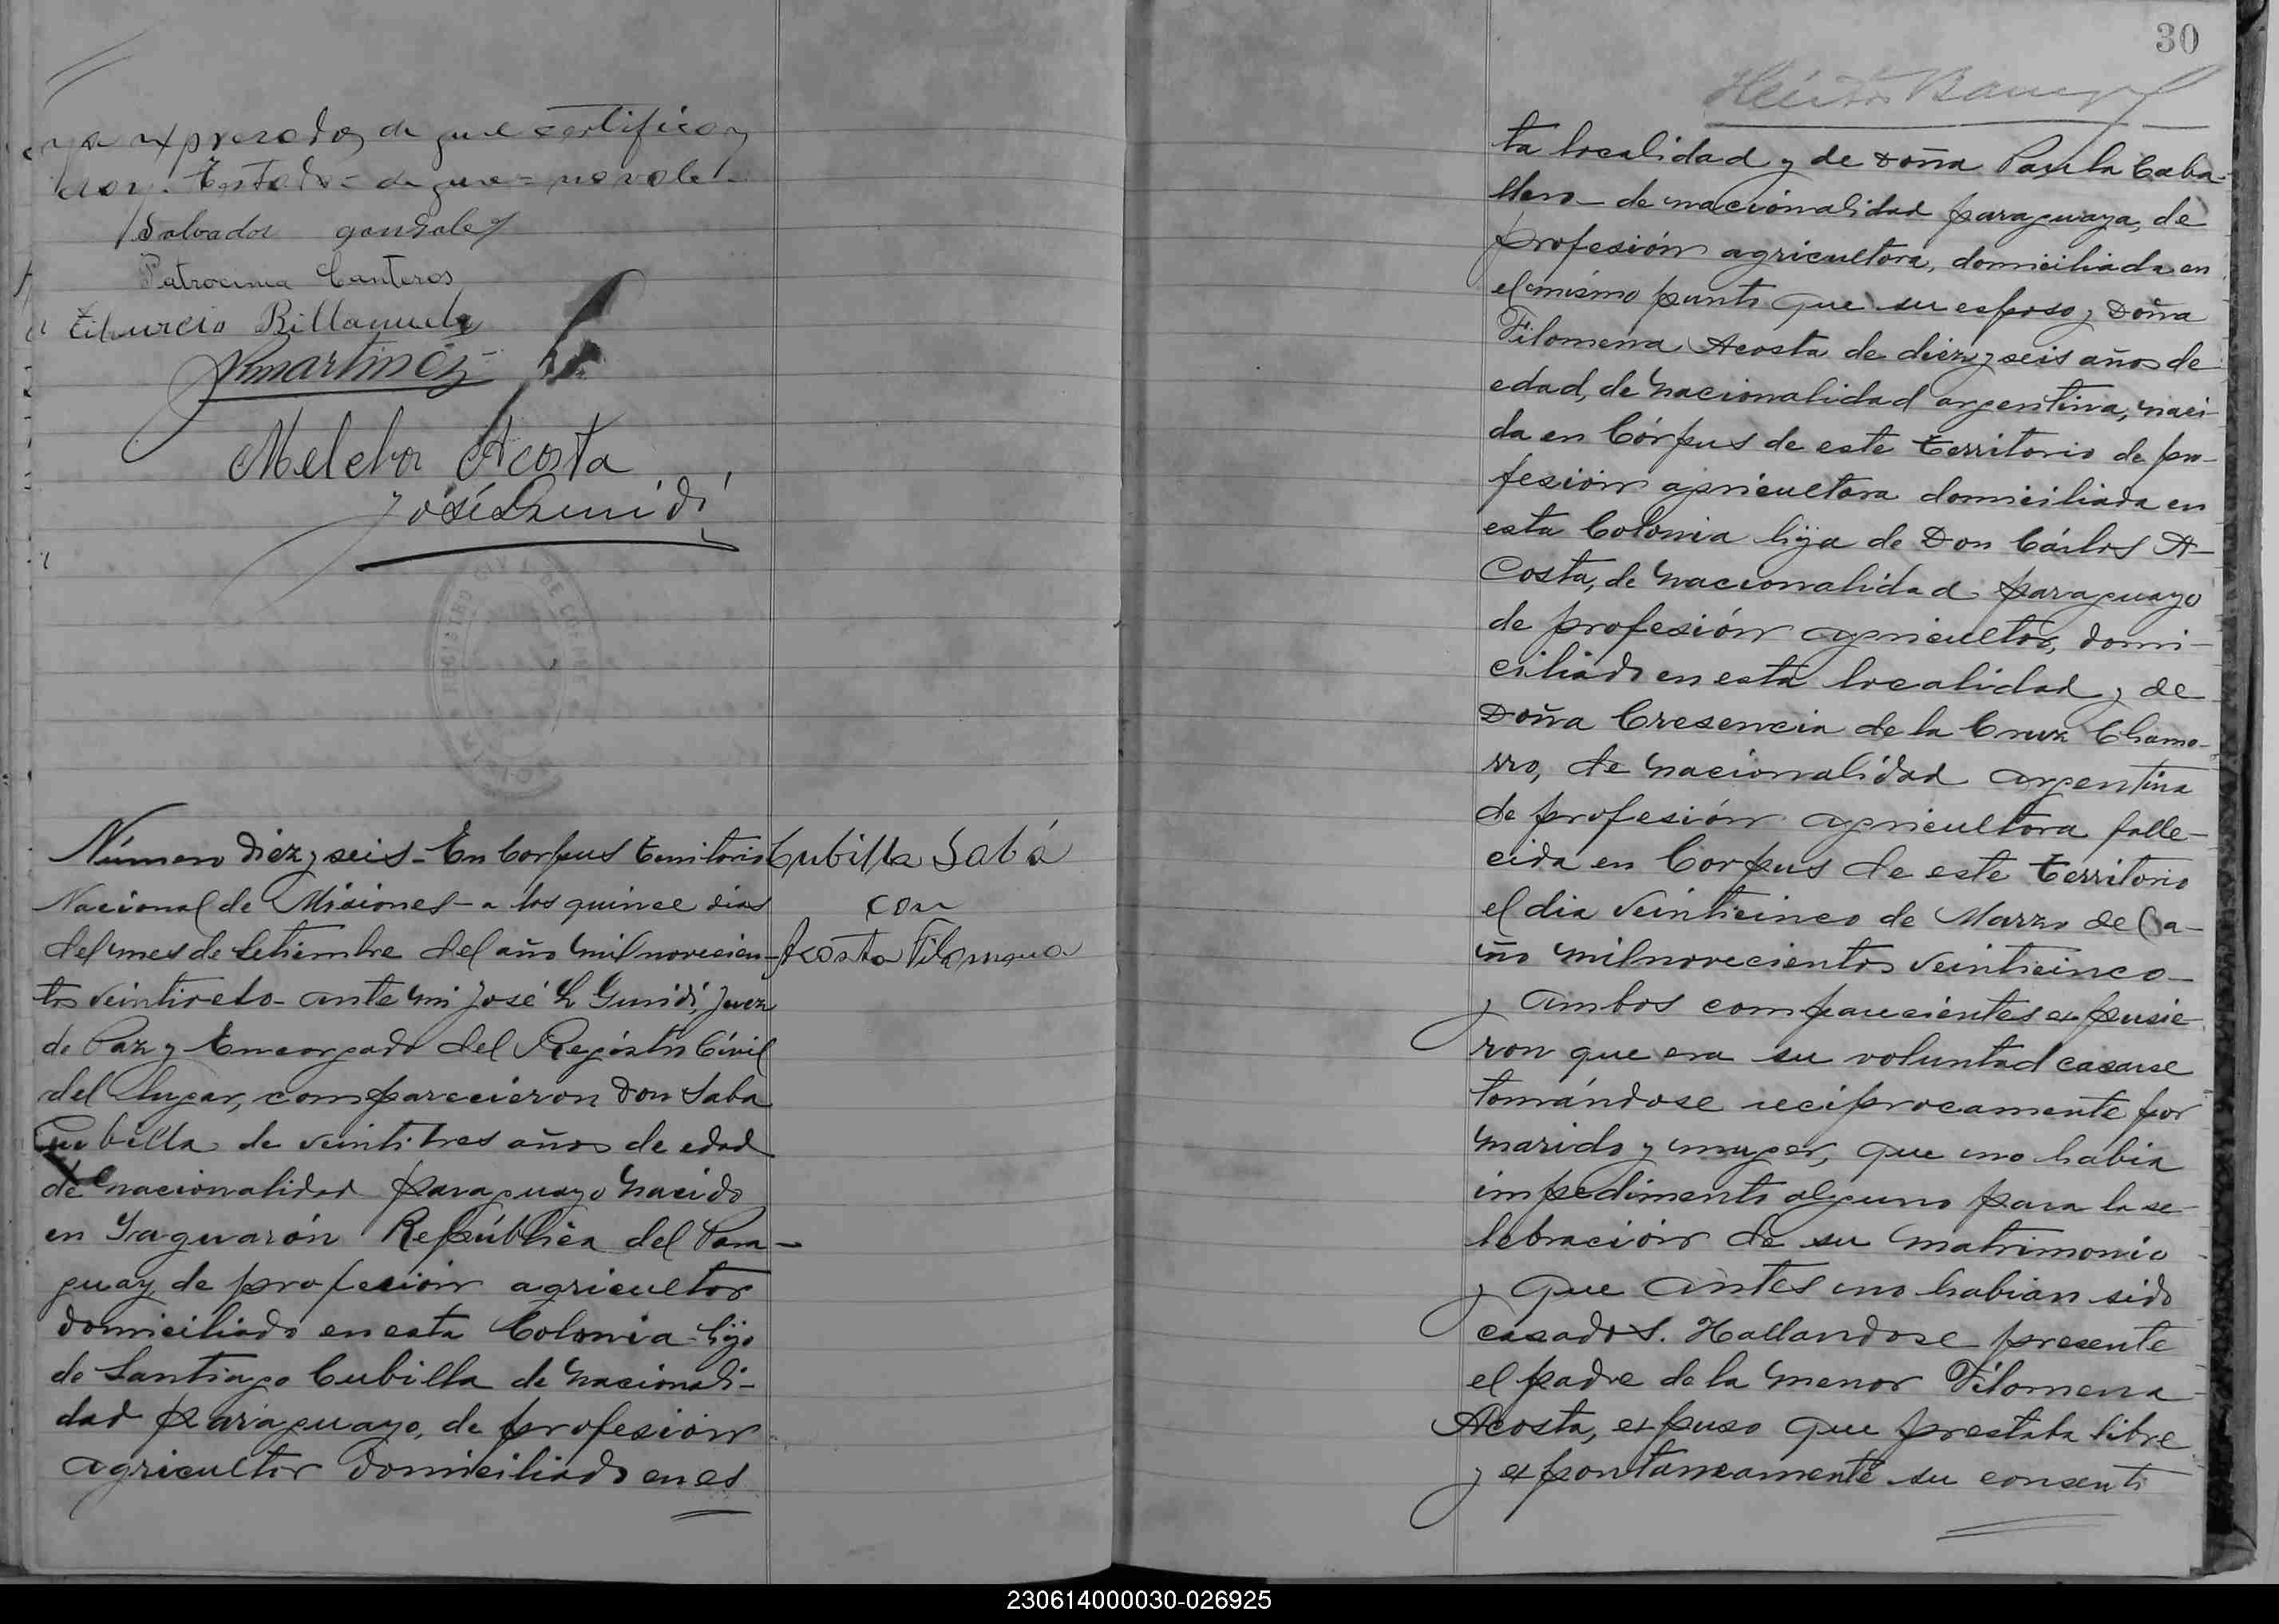 ya expresado, de que certifico y
doy. Testado = de que = no vale.
Salvador Gonzalez
Patrocinia Canteros
Tiburcio Billanueba
Martinez
Melchor Acosta
José L Gunidi
Número diez y seis - En Corpus Territorio
Nacional de Misiones - a los quince dias
del mes de Setiembre del año mil novecien-
tos veintiocto - ante mi José L Gunidi, Juez
de Paz y Encargado del Registro Civil
del lugar, comparecieron Don Saba
Cubilla de veintitres años de edad
de nacionalidad paraguayo nacido
en Yaguarón República del Para-
guay, de profesión agricultor
domiciliado en esta Colonia - hijo
de Santiago Cubilla de nacionali-
dad paraguayo, de profesión
agricultor domiciliado en es
Cubilla Sabá
con
Acosta Filomena
30
Héctor
ta localidad y de doña Paula Caba-
llero - de nacionalidad paraguaya, de
profesión agricultora, domiciliada en
el mismo punto que su esposo, y Doña
Filomena Acosta de diez y seis años de
edad, de nacionalidad argentina, naci-
da en Córpus de este territorio de pro-
fesión agricultora domiciliada en
esta Colonia hija de Don Cárlos A-
Costa, de nacionalidad paraguayo
de profesión agricultor, domi-
ciliado en esta localidad y de
Doña Cresencia de la Cruz Chamo-
rro, de nacionalidad argentina
de profesión agricultora falle-
cida en Corpus de este territorio
el dia veinticinco de Marzo del a-
ño mil novecientos veinticinco -
y ambos comparecientes expusie-
ron que era su voluntad casarse
tomándose reciprocamente por
marido y mujer, que no habia
impedimento alguno para la se-
lebración de su matrimonio
y que antes no habian sido
casados. Hallandose presente
el padre de la menor Filomena
Acosta, expuso que prestaba libre
y expontaneamente su consenti
230614000030-026925